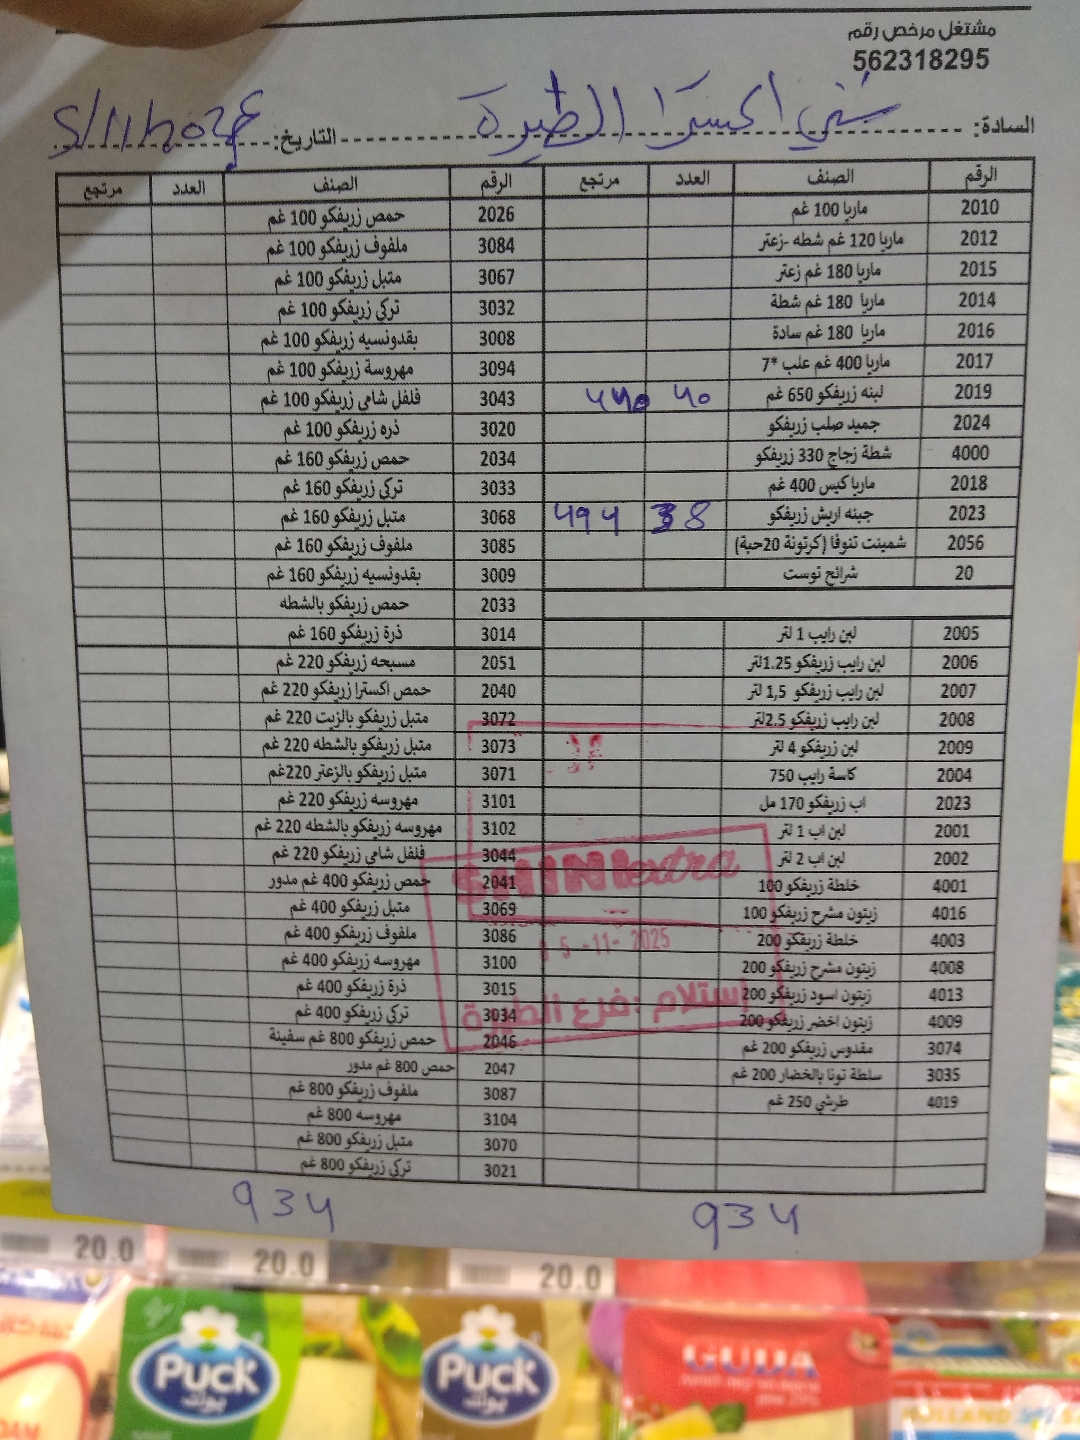 مشتغل مرخص رقم
562318295
السادة: شني اكسترا الطيرة التاريخ:
الرقم الصنف العدد مرتجع الرقم الصنف العدد مرتجع
2010 ماريا 100 غم 2026 حمص زريفكو 100 غم
2012 ماريا 120 غم شطه -زعتر 3084 ملفوف زريفكو 100 غم
2015 ماريا 180 غم زعتر 3067 متبل زريفكو 100 غم
2014 ماريا 180 غم شطة 3032 تركي زريفكو 100 غم
2016 ماريا 180 غم سادة 3008 بقدونسيه زريفكو 100 غم
2017 ماريا 400 غم علب *7 3094 مهروسة زريفكو 100 غم
2019 لبنه زريفكو 650 غم 3043 فلفل شامي زريفكو 100 غم
2024 جميد صلب زريفكو 3020 ذره زريفكو 100 غم
4000 شطة زجاج 330 زريفكو 2034 حمص زريفكو 160 غم
2018 ماريا كيس 400 غم 3033 تركي زريفكو 160 غم
2023 جبنه اريش زريفكو 38 494 3068 متبل زريفكو 160 غم
2056 شمينت تنوفا (كرتونة 20حبة) 3085 ملفوف زريفكو 160 غم
20 شرائح توست 3009 بقدونسيه زريفكو 160 غم
2033 حمص زريفكو بالشطه
2005 لبن رايب 1 لتر 3014 ذرة زريفكو 160 غم
2006 لبن رايب زريفكو 1.25لتر 2051 مسبحه زريفكو 220 غم
2007 لبن رايب زريفكو 1,5 لتر 2040 حمص اكسترا زريفكو 220 غم
2008 لبن رايب زريفكو 2.5لتر 3072 متبل زريفكو بالزيت 220 غم
2009 لبن زريفكو 4 لتر 3073 متبل زريفكو بالشطه 220 غم
2004 كاسة رايب 750 3071 متبل زريفكو بالزعتر 220غم
2023 اب زريفكو 170 مل 3101 مهروسه زريفكو 220 غم
2001 لبن اب 1 لتر 3102 مهروسه زريفكو بالشطه 220 غم
2002 لبن اب 2 لتر 3044 فلفل شامي زريفكو 220 غم
4001 خلطة زريفكو 100 2041 حمص زريفكو 400 غم مدور
4016 زيتون مشرح زريفكو 100 3069 متبل زريفكو 400 غم
4003 خلطة زريفكو 200 3086 ملفوف زريفكو 400 غم
4008 زيتون مشرح زريفكو 200 3100 مهروسه زريفكو 400 غم
4013 زيتون اسود زريفكو 200 3015 ذرة زريفكو 400 غم
4009 زيتون اخضر زريفكو 200 3034 تركي زريفكو 400 غم
3074 مقدوس زريفكو 200 غم 2046 حمص زريفكو 800 غم سفينة
3035 سلطة تونا بالخضار 200 غم 2047 حمص 800 غم مدور
4019 طرشي 250 غم 3087 ملفوف زريفكو 800 غم
3104 مهروسه 800 غم
3070 متبل زريفكو 800 غم
3021 تركي زريفكو 800 غم
SHINI extra
5 -11- 2025
إستلام :فرع الطيرة
934 934
20.0 20.0 20.0
Puck
بوك
Puck
بوك
GUDA
HOLLAND